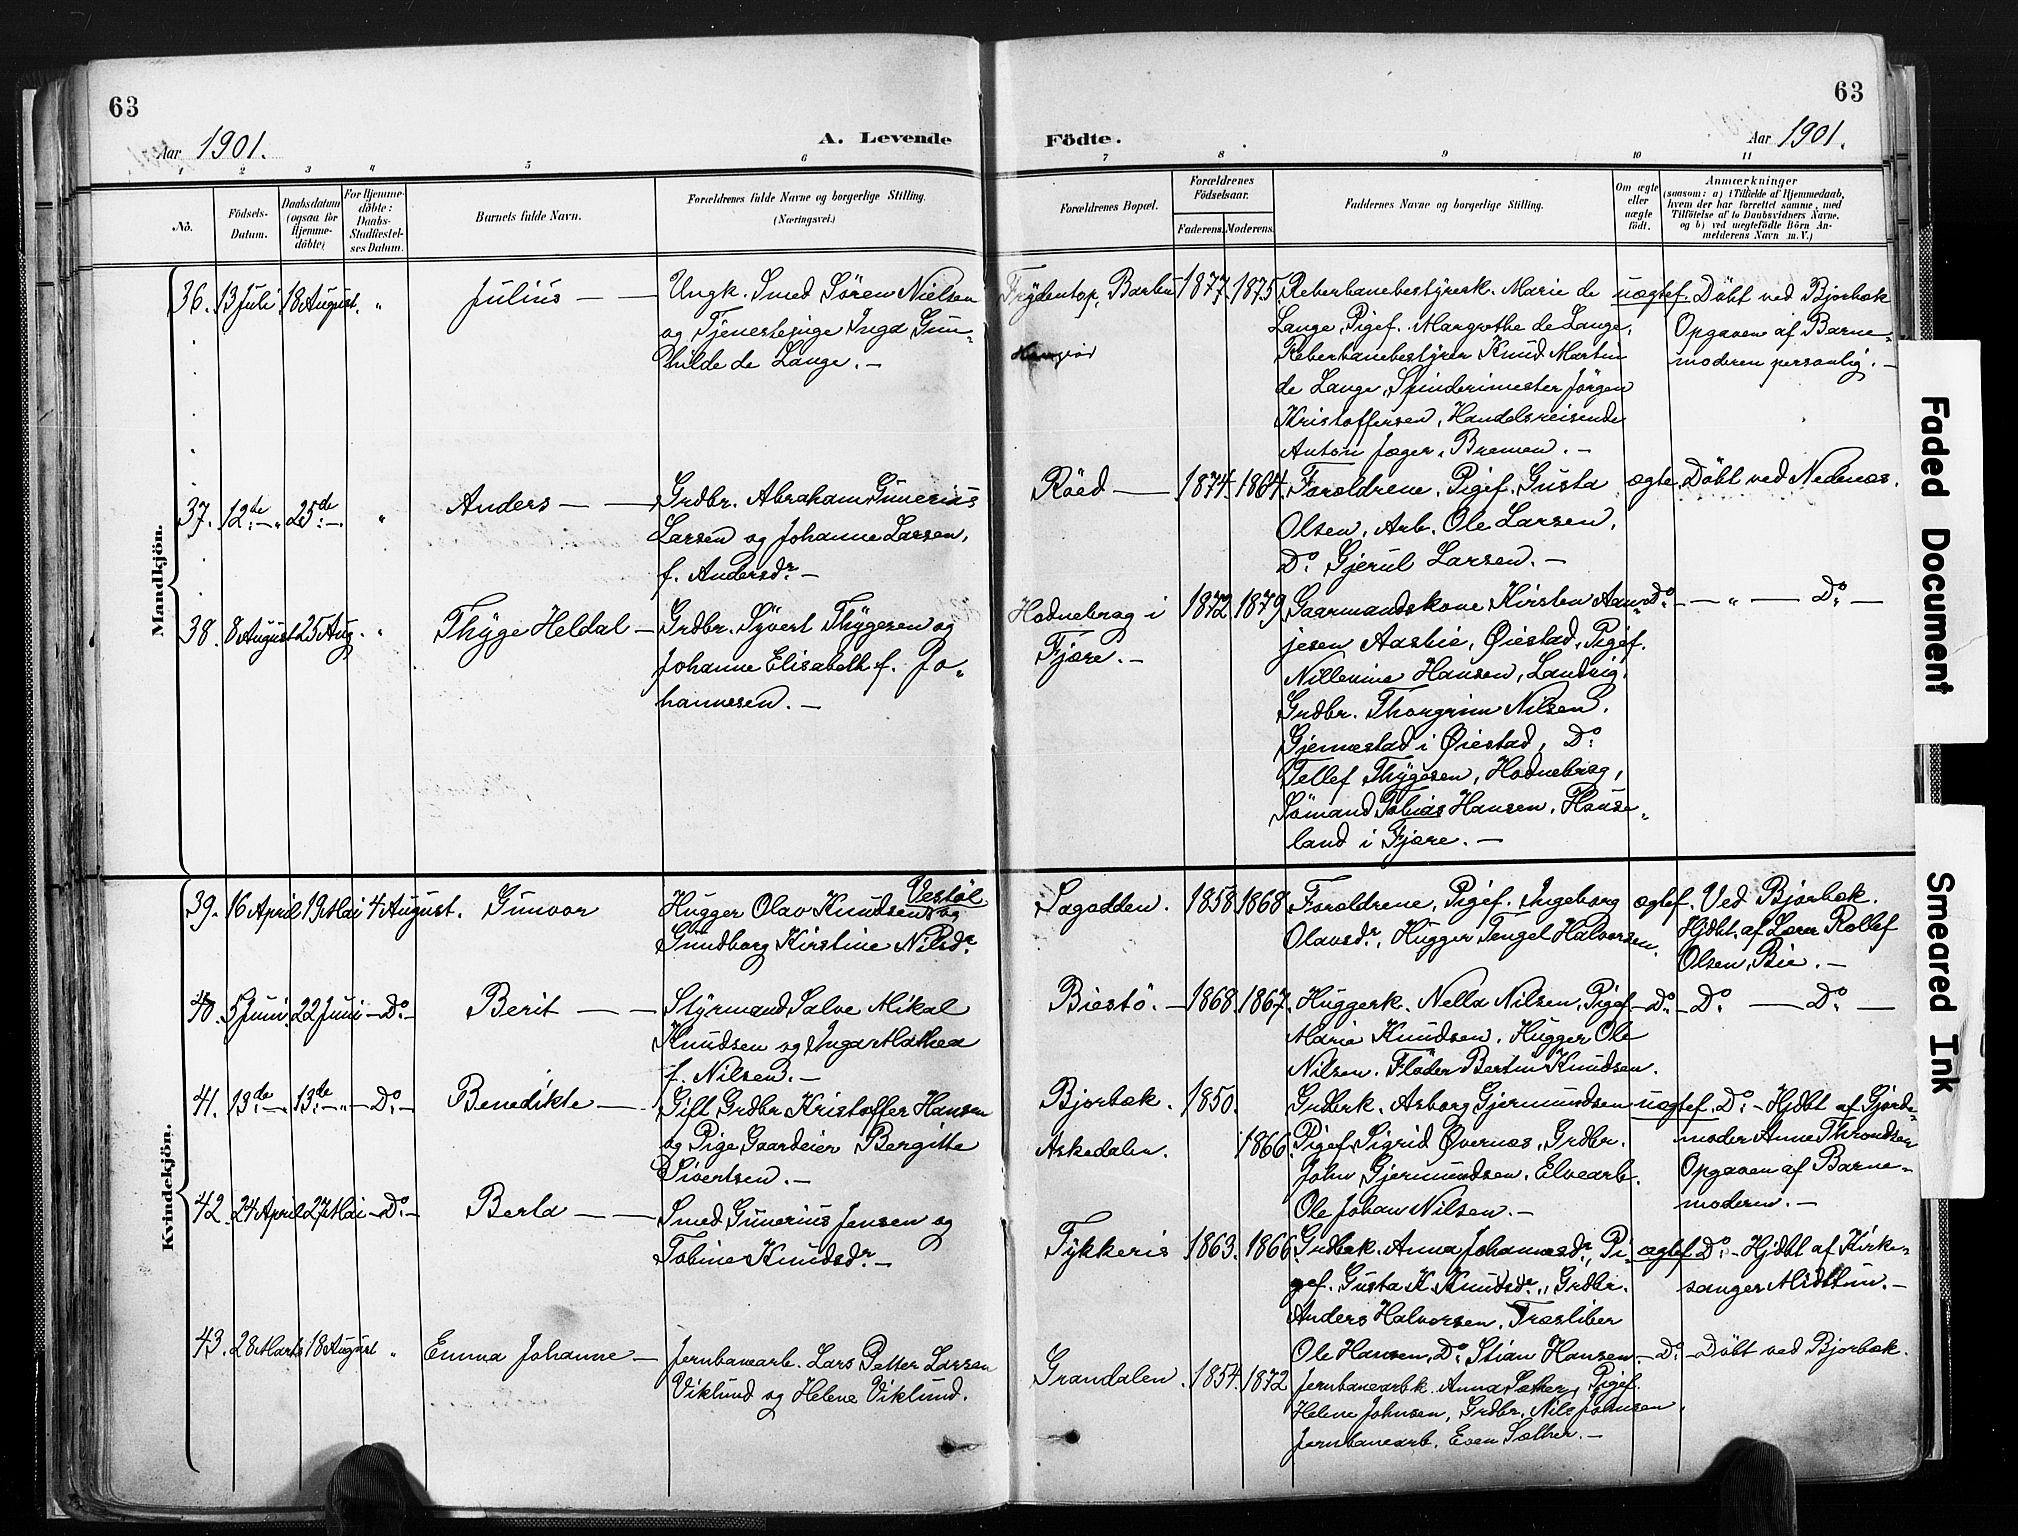 63
63
Aar 1901.
A. Levende
Födte.
Aar 1901.
1 2 3 4 5 6 7 8 9 10 11
No.
Födsels-
Datum.
Daabsdatum
(ogsaa for
Hjemme-
döbte)
For Hjemme-
döbte:
Daabs-
Stadfæstel-
ses Datum.
Barnets fulde Navn.
Forældrenes fulde Navne og borgerlige Stilling.
(Næringsvei.)
Forældrenes Bopæl.
Forældrenes
Födselsaar.
Faderens. Moderens.
Faddernes Navne og borgerlige Stilling.
Om ægte
eller
uægte
født.
Anmærkninger
(saasom: a) i Tilfælde af Hjemmedaab,
hvem der har forrettet samme, med
Tilföielse af to Daabsvidners Navne,
og b) ved uægtefödte Börn An-
melderens Navn m.V.)
Mandkjön.
36. 13 Juli 18 August. " Julius — —
Ungk. Smed Sören Nielsen
og Tjenestepige Inga Gun-
hilde de Lange. —
Frydentop, Barbu
1877. 1875.
Reberbanebestyrerk. Marie de
Lange, Pigef. Margrethe de Lange,
Reberbanebestyrer Knud Martin
de Lange, Spinderimester Jörgen
Kristoffersen, Handelsreisende
Anton Jæger, Bremen. —
uægtef. Döbt ved Bjorbæk
Opgaven af Barne-
moderen personlig. —
37. 12te — 25de — " Anders — —
Grdbr. Abraham Gunerius
Larsen og Johanne Larsen,
f. Andersdr. —
Röed —
1874. 1864.
Forældrene, Pigef. Gusta
Olsen, Arb. Ole Larsen,
Do. Gjerul Larsen. —
ægte. Döbt ved Nedenæs.
38. 8 August 25 Aug. " Thyge Heldal —
Grdbr. Syvert Thygesen og
Johanne Elisabeth f. Jo-
hannesen. —
Hodnebrog i
Fjære. —
1872. 1879.
Gaarmandskone Kirsten Aan-
jesen Aasbie, Øiestad, Pigef.
Nillenine Hansen, Landvig,
Grdbr. Thorgrim Nilsen,
Gjennestad i Øiestad, Do.
Tellef Thygesen, Hodnebrog,
Sömand Tobias Hansen, Hause-
land i Fjære. —
Do. — — " — Do. —
Kvindekjön.
39. 16 April 19 Mai 4 August. Gunvor
Vestöl
Hugger Olav Knudsen og
Gundborg Kirstine Nilsdr.
Sagodden.
1858. 1868.
Forældrene, Pigef. Ingeborg
Olavsdr., Hugger Tengel Halvorsen.
ægtef. Ved Bjorbæk.
Hjdbt. af Lærer Rollef
Olsen, Bie. —
40. 5 Juni. 22 Juni — Do. — Berit — —
Styrmand Salve Mikal
Knudsen og Inga Mathea
f. Nilsen. —
Biestö. —
1868. 1867.
Huggerk. Nella Nilsen, Pigef.
Marie Knudsen, Hugger Ole
Nilsen. Flöder Bertin Knudsen.
— Do. — Do. — Do. —
41. 13de — 13de — " — Do. — Benedikte —
Gift Grdbr. Kristoffer Hansen
og Pige Gaardeier Bergitte
Sivertsen. —
Bjorbæk.
Askedalen.
1850.
1866.
Grdbrk. Asborg Gjermundsen
Pigef. Sigrid Øvernæs, Grdbr.
John Gjermundsen, Elvearb.
Ole Johan Nilsen. —
uægtef. Do. — Hjdbt. af Gjorde-
moder Anne Throndsen
Opgaven af Barne-
moderen. —
42. 24 April 27 Mai — Do. — Berta — —
Smed Gunerius Jensen og
Tobine Knudsdr. —
Tykkeris
1863. 1866.
Grdbok. Anna Johannesdr., Pi-
gef. Gusta K. Knudsdr., Grdbr.
Anders Halvorsen, Træsliber
Ole Hansen, Do. Stian Hansen.
ægtef. Do. — Hjdbt af Kirke-
sanger Midttun. —
43. 28 Marts 18 August " Emma Johanne —
Jernbanearb. Lars Petter Larsen
Viklund og Helene Viklund.
Grandalen.
1854. 1872
Jernbanearbk. Anna Sæther, Pigef.
Helene Johnsen, Grdbr. Nils Johnsen,
Jernbanearb. Even Sæther. —
— Do. — Döbt ved Bjorbæk.
Faded Document
Smeared Ink